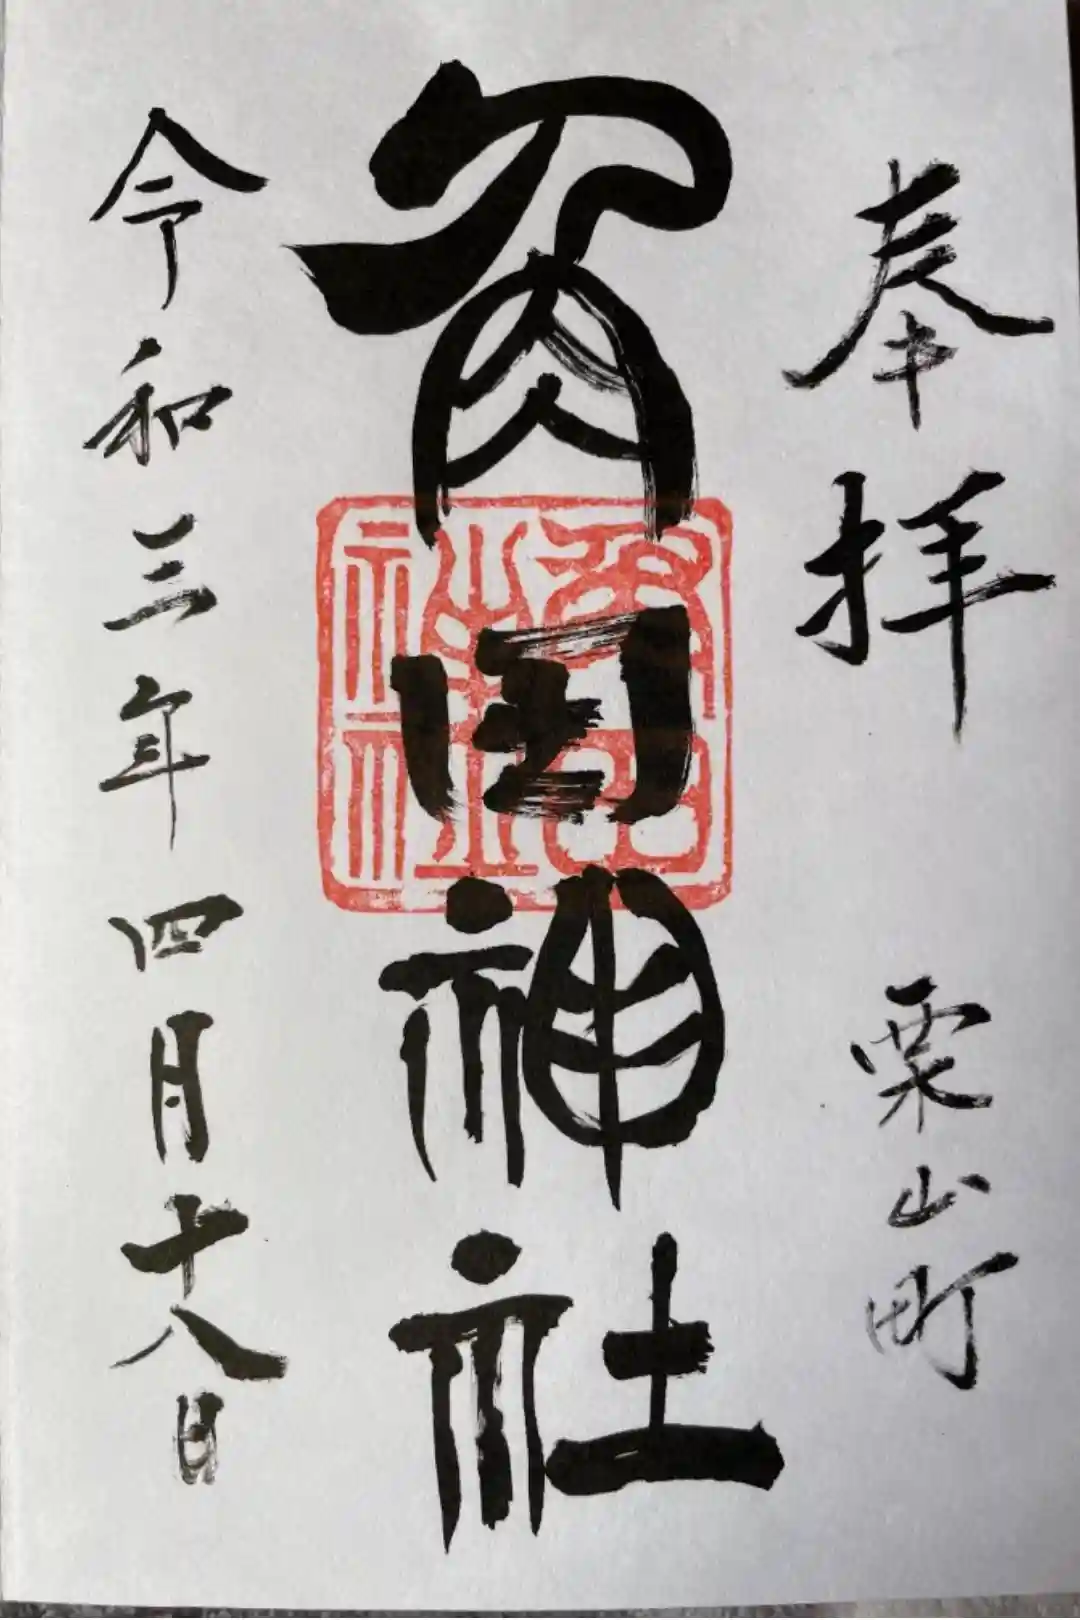 奉拝 栗山町
角田神社
角田
神社
令和三年四月十八日